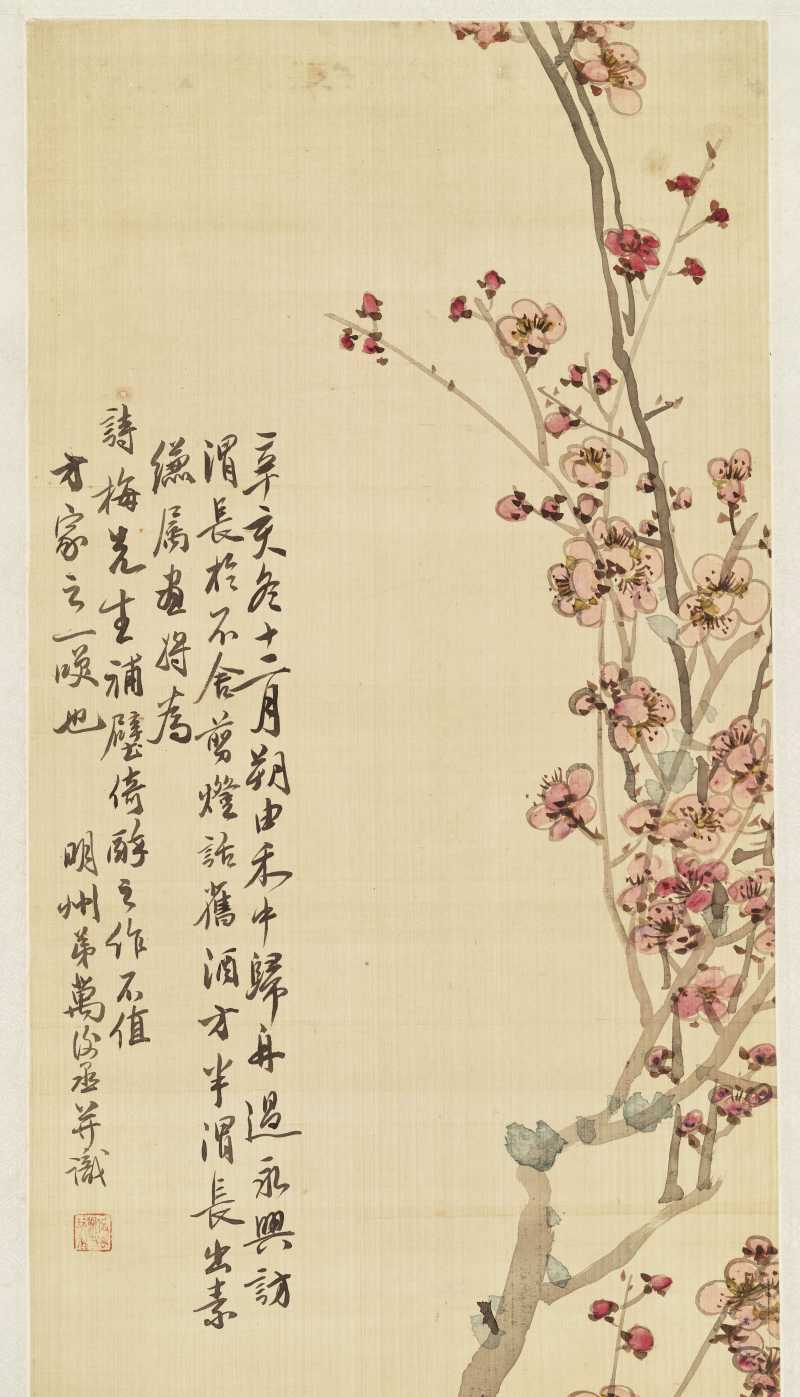 辛亥冬十二月朔由禾中歸舟過永興訪
渭長於不舍剪燈話舊酒方半渭長出素
縑属畫將為
詩梅先生補壁倚醉之作不值
方家之一噗也
明州弟萬後丞并識